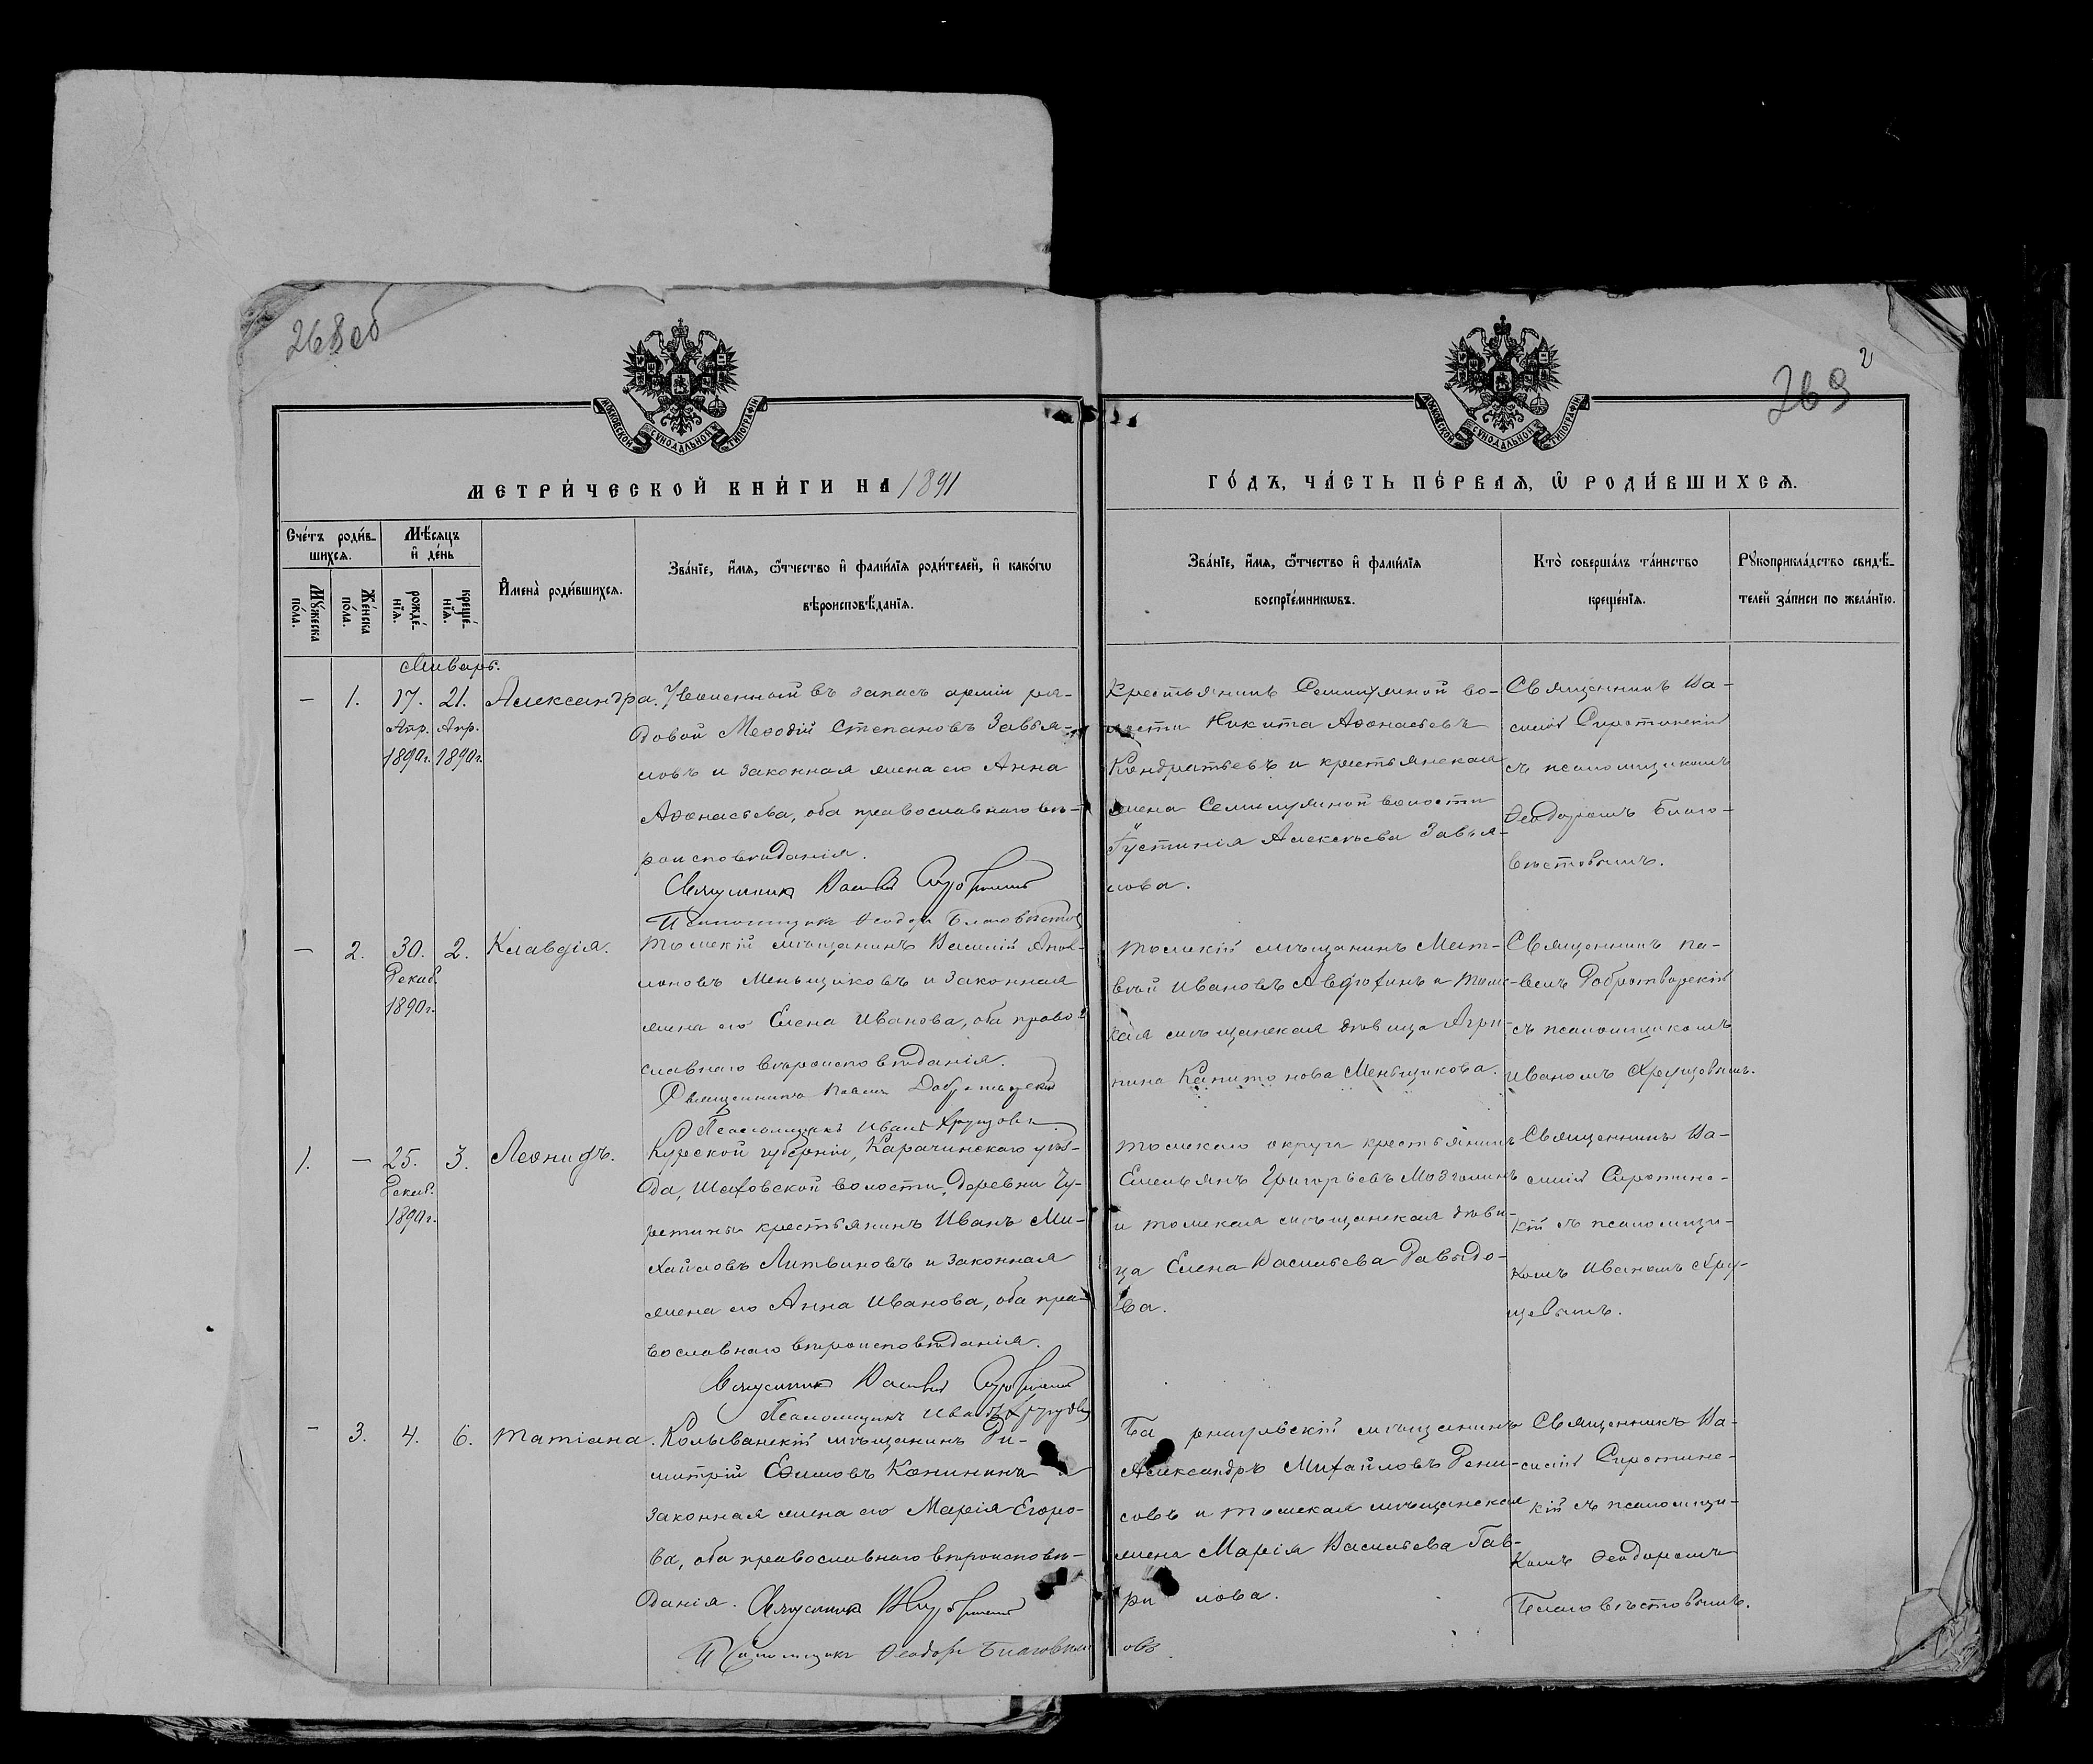 268об
269
2
МОСКОВСКОЙ СѴНОДАЛЬНОЙ ТИПОГРАФІИ
МОСКОВСКОЙ СѴНОДАЛЬНОЙ ТИПОГРАФІИ
МЕТРИ́ЧЕСКОЙ КНИ́ГИ НА 1891
ГО́ДЪ, ЧА́СТЬ ПЕ́РВАѦ, Ѽ РОДИ́ВШИХСѦ.
Сче́тъ роди́в-
шихсѧ.
Мѣ́сѧцъ
и҆ де́нь
Мꙋ́жеска
по́ла.
Же́нска
по́ла.
рожде́-
нїѧ.
креще́-
нїѧ.
И҆мена̀ роди́вшихсѧ.
Зва́нїе, и҆́мѧ, ѻ҆́тчество и҆ фами́лїѧ роди́телей, и҆ како́гѡ
вѣроисповѣ́данїѧ.
Зва́нїе, и҆́мѧ, ѻ҆́тчество и҆ фами́лїѧ
воспрїе́мникѡвъ.
Кто̀ соверша́лъ та́инство
креще́нїѧ.
Рꙋкоприкла́дство свидѣ́-
телей за́писи по жела́нїю.
Январь.
— 1. 17. 21. Александра.
Апр. Апр.
1890г. 1890г.
Уволенный въ запасъ арміи ря-
довой Меѳодій Степановъ Завья-
ловъ и законная жена его Анна
Аѳонасьева, оба православнаго вѣ-
роисповѣданія.
Священникъ Василій Сиротинскій
Псаломщикъ Ѳеодоръ Благовѣстовъ
Крестьянинъ Семилужной во-
лости Никита Аѳонасьевъ
Кондратьевъ и крестьянская
жена Семилужной волости
Іустинія Алексѣева Завья-
лова.
Священникъ Ва-
силій Сиротинскій
съ псаломщикомъ
Ѳеодоромъ Благо-
вѣстовымъ.
— 2. 30. 2. Клавдія.
Декаб.
1890г.
Томскій мѣщанинъ Василій Апол-
лоновъ Меньщиковъ и законная
жена его Елена Иванова, оба право-
славнаго вѣроисповѣданія.
Священникъ Павелъ Добротворскій
Псаломщикъ Иванъ Хрущовъ
Томскій мѣщанинъ Мат-
вѣй Ивановъ Авдюхинъ и томс-
кая мѣщанская дѣвица Агри-
пина Капитонова Меньщикова.
Священникъ Па-
велъ Добротворскій
съ псаломщикомъ
Иваномъ Хрущовымъ.
1. — 25. 3. Леонидъ.
Декаб.
1890г.
Курской губерніи, Карачинскаго уѣз-
да, Шаховской волости, деревни Чу-
ретины крестьянинъ Иванъ Ми-
хайловъ Литвиновъ и законная
жена его Анна Иванова, оба пра-
вославнаго вѣроисповѣданія.
Священникъ Василій Сиротинскій
Псаломщикъ Иванъ Хрущовъ
Томскаго округа крестьянинъ
Емельянъ Григорьевъ
и томская мѣщанская дѣви-
ца Елена Васильева Давыдо-
ва.
Священникъ Ва-
силій Сиротинс-
кій съ псаломщи-
комъ Иваномъ Хру-
щовымъ.
— 3. 4. 6. Татіана.
Колыванскій мѣщанинъ Ди-
митрій Еѳимовъ Конининъ и
законная жена его Марія Егоро-
ва, оба православнаго вѣроисповѣ-
данія. Священникъ В Сиротинскій
Псаломщикъ Ѳеодоръ Благовѣстовъ
Барнаульскій мѣщанинъ
Александръ Михайловъ Дени-
совъ и томская мѣщанская
жена Марія Васильева Гав-
рилова.
Священникъ Ва-
силій Сиротинс-
кій съ псаломщи-
комъ Ѳеодоромъ
Благовѣстовымъ.